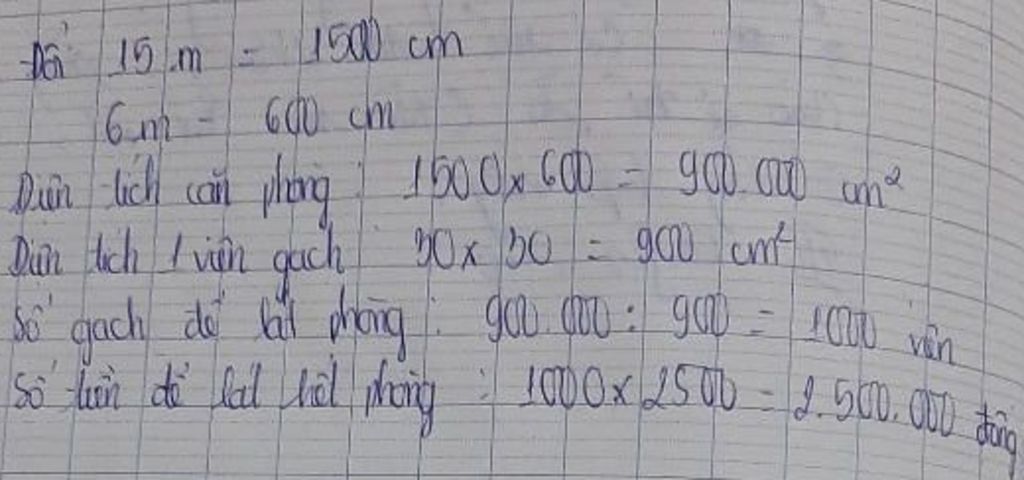 Đổi 15 m = 1500 cm
6 m = 600 cm
Diện tích căn phòng : 1500 x 600 = 900.000 cm²
Diện tích 1 viên gạch : 30 x 30 = 900 cm²
Số gạch để lát phòng : 900.000 : 900 = 1000 viên
Số tiền để lát hết phòng : 1000 x 2500 = 2.500.000 đồng